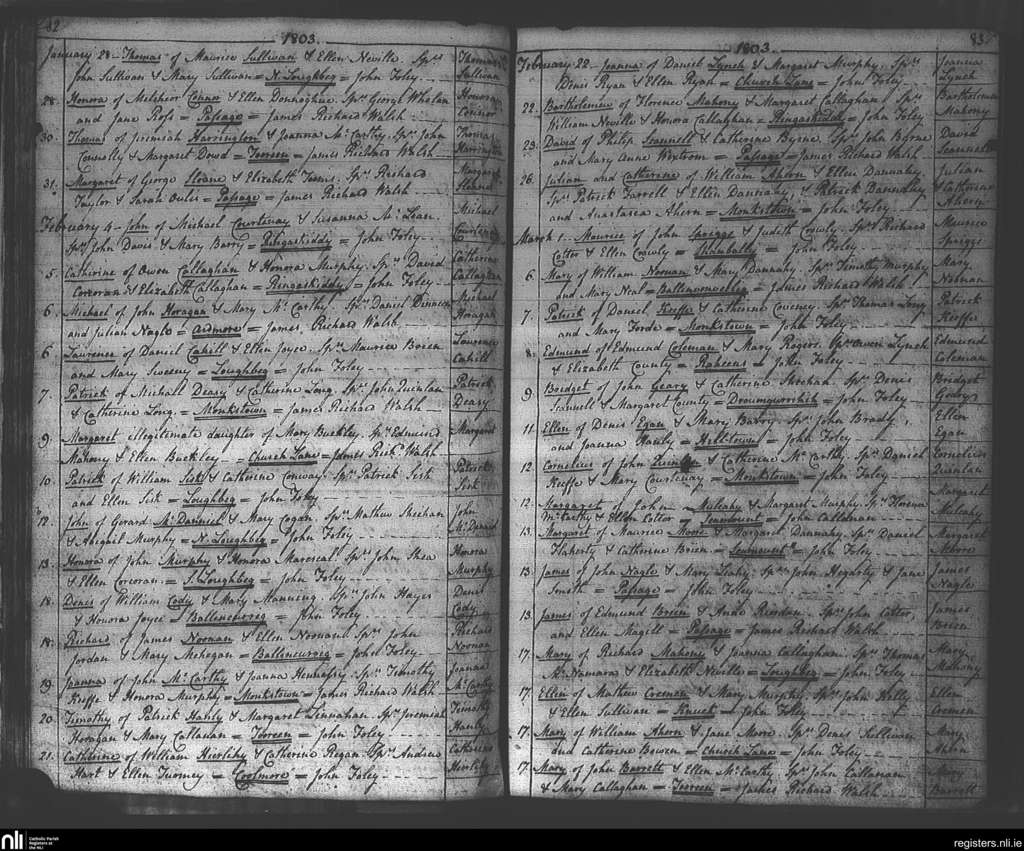 82
1803
January 28 Thomas of Maurice Sullivan & Ellen Neville. Sprs
John Sullivan & Mary Sullivan = N. Loughbeg = John Foley
Thomas
Sullivan
28. Honora of Melchior Connor & Ellen Donnoghue. Sprs George Whelan
and Jane Ross = Passage = James Richard Walsh
Honora
Connor
30. Thomas of Jeremiah Harrington & Joanna McCarthy. Sprs John
Connolly & Margaret Dowd = Toreen = James Richard Walsh
Thomas
Harrington
31. Margaret of George Sloane & Elizabeth Sprs Richard
Taylor & Sarah = Passage = James Richard Walsh
Margaret
February 4 John of Michael Courtenay & Susanna
Sprs John Davis & Mary Barry = Ringaskiddy = John Foley
Michael
Courtenay
5. Catherine of Owen Callaghan & Honora Murphy. Sprs David
Corcoran & Elizabeth Callaghan = Ringaskiddy = John Foley
Catherine
Callaghan
6. Michael of John Horagan & Mary McCarthy. Sprs Daniel
and Julian Nagle = Ardmore = James Richard Walsh
Michael
Horagan
6. Laurence of Daniel Cahill & Ellen Joyce. Sprs Maurice Brien
and Mary Sweeny = Loughbeg = John Foley
Laurence
Cahill
7. Patrick of Michall Deasy & Catherine Long. Sprs John Quinlan
& Catherine Long. = Monkstown = James Richard Walsh
Patrick
Deasy
9. Margaret illegitimate daughter of Mary Buckley. Sprs Edmund
Mahony & Ellen Buckley = Church Lane = James Richd Walsh
Margaret
10. Patrick of William Sisk & Catherine Conway. Sprs Patrick Sisk
and Ellen Sisk = Loughbeg = John Foley
Patrick
Sisk
12. John of Gerard McDanniel & Mary Cogan. Sprs Mathew Sheehan
& Abigail Murphy = N. Loughbeg = John Foley
John
13. Honora of John Murphy & Honora Sprs John Shea
& Ellen Corcoran = S. Loughbeg = John Foley
Honora
Murphy
18. Denis of William Cody & Mary Manning. Sprs John Hayes
& Honora Joyce = Ballencurreg = John Foley
Denis
Cody
18. Richard of James Noonan & Ellen Noonan. Sprs John
Jordan & Mary Mehegan = Ballencurreg = John Foley
Richard
Noonan
19. Joanna of John McCarthy & Joanna Hennessy. Sprs Timothy
Keiffe & Honora Murphy = Monkstown = James Richard Walsh
Joanna
McCarthy
20 Timothy of Patrick Hanly & Margaret Linnahan. Sprs Jeremiah
Horagan & Mary Callanan = Toreen = John Foley
Timothy
Hanly
21. Catherine of William Hierlihy & Catherine Regan. Sprs Andrew
Hart & Ellen Twomey = Coolmore = John Foley
Catherine
Hierlihy
83
1803
February 22 Joanna of Daniel Lynch & Margaret Murphy. Sprs
Denis Ryan & Ellen Ryan = Church Lane = John Foley
Joanna
Lynch
22. Bartholemew of Florence Mahony & Margaret Callaghan. Sprs
William Neville & Honora Callaghan = Ringaskiddy = John Foley
Bartholemew
Mahony
23. David of Philip Scannell & Catherine Byrne. Sprs John Byrne
and Mary Anne = Passage = James Richard Walsh
David
Scannell
26. Julian and Catherine of William Ahern & Ellen Dannahy.
Sprs Patrick Farrell & Ellen Dannahy, & Patrick Dannahy
and Anastasia Ahern = Monkstown = John Foley
Julian
& Catherine
Ahern
March 1. Maurice of John Spriggs & Judith Crowly. Sprs Richard
Cotter & Ellen Crowly = = John Foley
Maurice
Spriggs
6. Mary of William Noonan & Mary Dannahy. Sprs Timothy Murphy
and Mary Neal = = James Richard Walsh
Mary
Nonan
7. Patrick of Daniel Keiffe & Catherine Sprs Thomas Long
and Mary Forde = Monkstown = John Foley
Patrick
Keiffe
8. Edmund of Edmund Coleman & Mary Rogers. Sprs Owen Lynch
& Elizabeth County = Raheens = John Foley
Edmund
Coleman
9. Bridget of John Geary & Catherine Sheehan. Sprs Denis
Scannell & Margaret County = = John Foley
Bridget
Geary
11. Ellen of Denis Egan & Mary Barry. Sprs John Brady
and Joanna Hanly = Hilltown = John Foley
Ellen
Egan
12. Cornelius of John & Catherine McCarthy. Sprs Daniel
Keiffe & Mary Courtenay = Monkstown = John Foley
Cornelius
Quinlan
12. Margaret of John Mulcahy & Margaret Murphy. Sprs Florence
McCarthy & Ellen Cotter = = John Callanan
Margaret
Mulcahy
13. Margaret of Maurice Moore & Margaret Dannahy. Sprs Daniel
Flaherty & Catherine Brien = = John Foley
Margaret
Moore
13. James of John Nagle & Mary Leahy. Sprs John Hegarty & Jane
Smith = Passage = John Foley
James
Nagle
13. James of Edmund Breen & Anne Riordan. Sprs John Cotter
and Ellen Magill = Passage = James Richard Walsh
James
Breen
17. Mary of Richard Mahony & Joanna Callaghan. Sprs Thomas
McNamara & Elizabeth Neville = Loughbeg = John Foley
Mary
Mahony
17. Ellen of Mathew Cremen & Mary Murphy. Sprs John Kelly
& Ellen Sullivan = = John Foley
Ellen
Cremen
17. Mary of William Ahern & Jane Moore. Sprs Denis Sullivan
and Catherine Bowen = Church Lane = John Foley
Mary
Ahern
17. Mary of John Barrett & Ellen McCarthy. Sprs John Callanan
& Mary Callaghan = Toreen = James Richard Walsh
Mary
Barrett
nli
Catholic Parish
Registers at
the NLI
registers.nli.ie